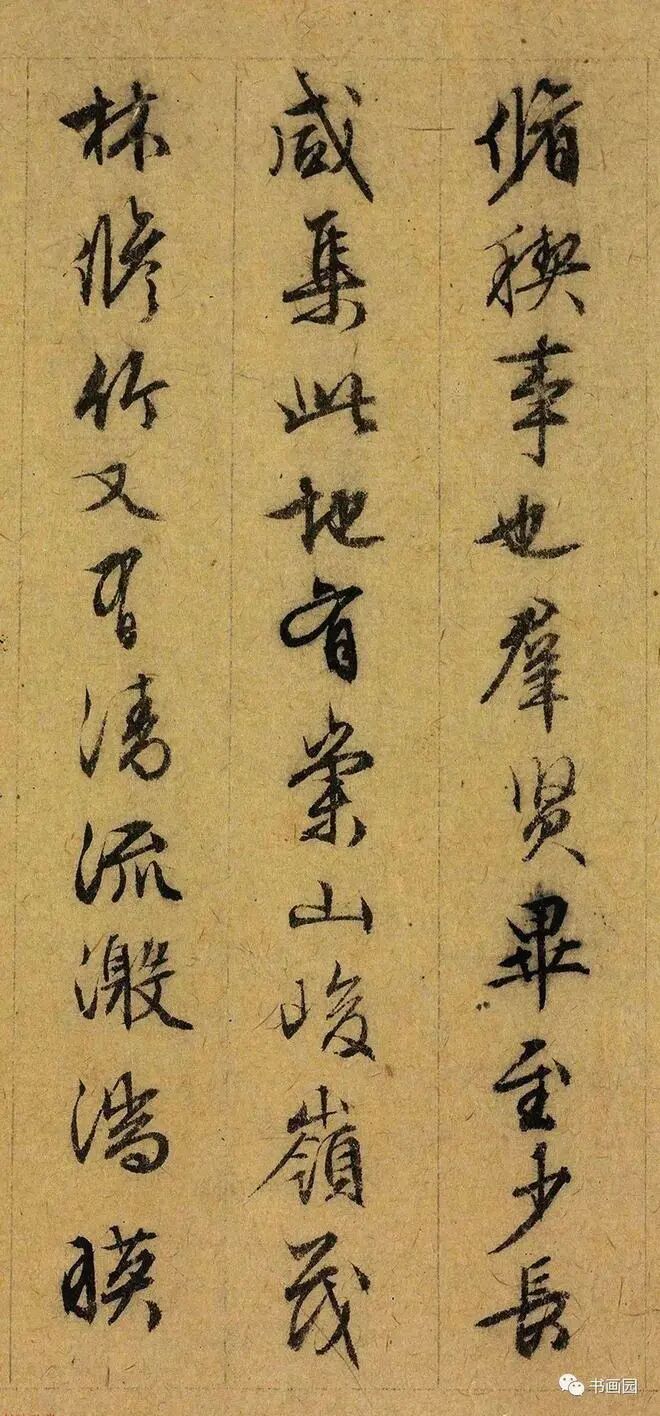 脩稧事也羣贤畢至少長
咸集此地有崇山峻嶺茂
林脩竹又有清流激湍暎
书画园